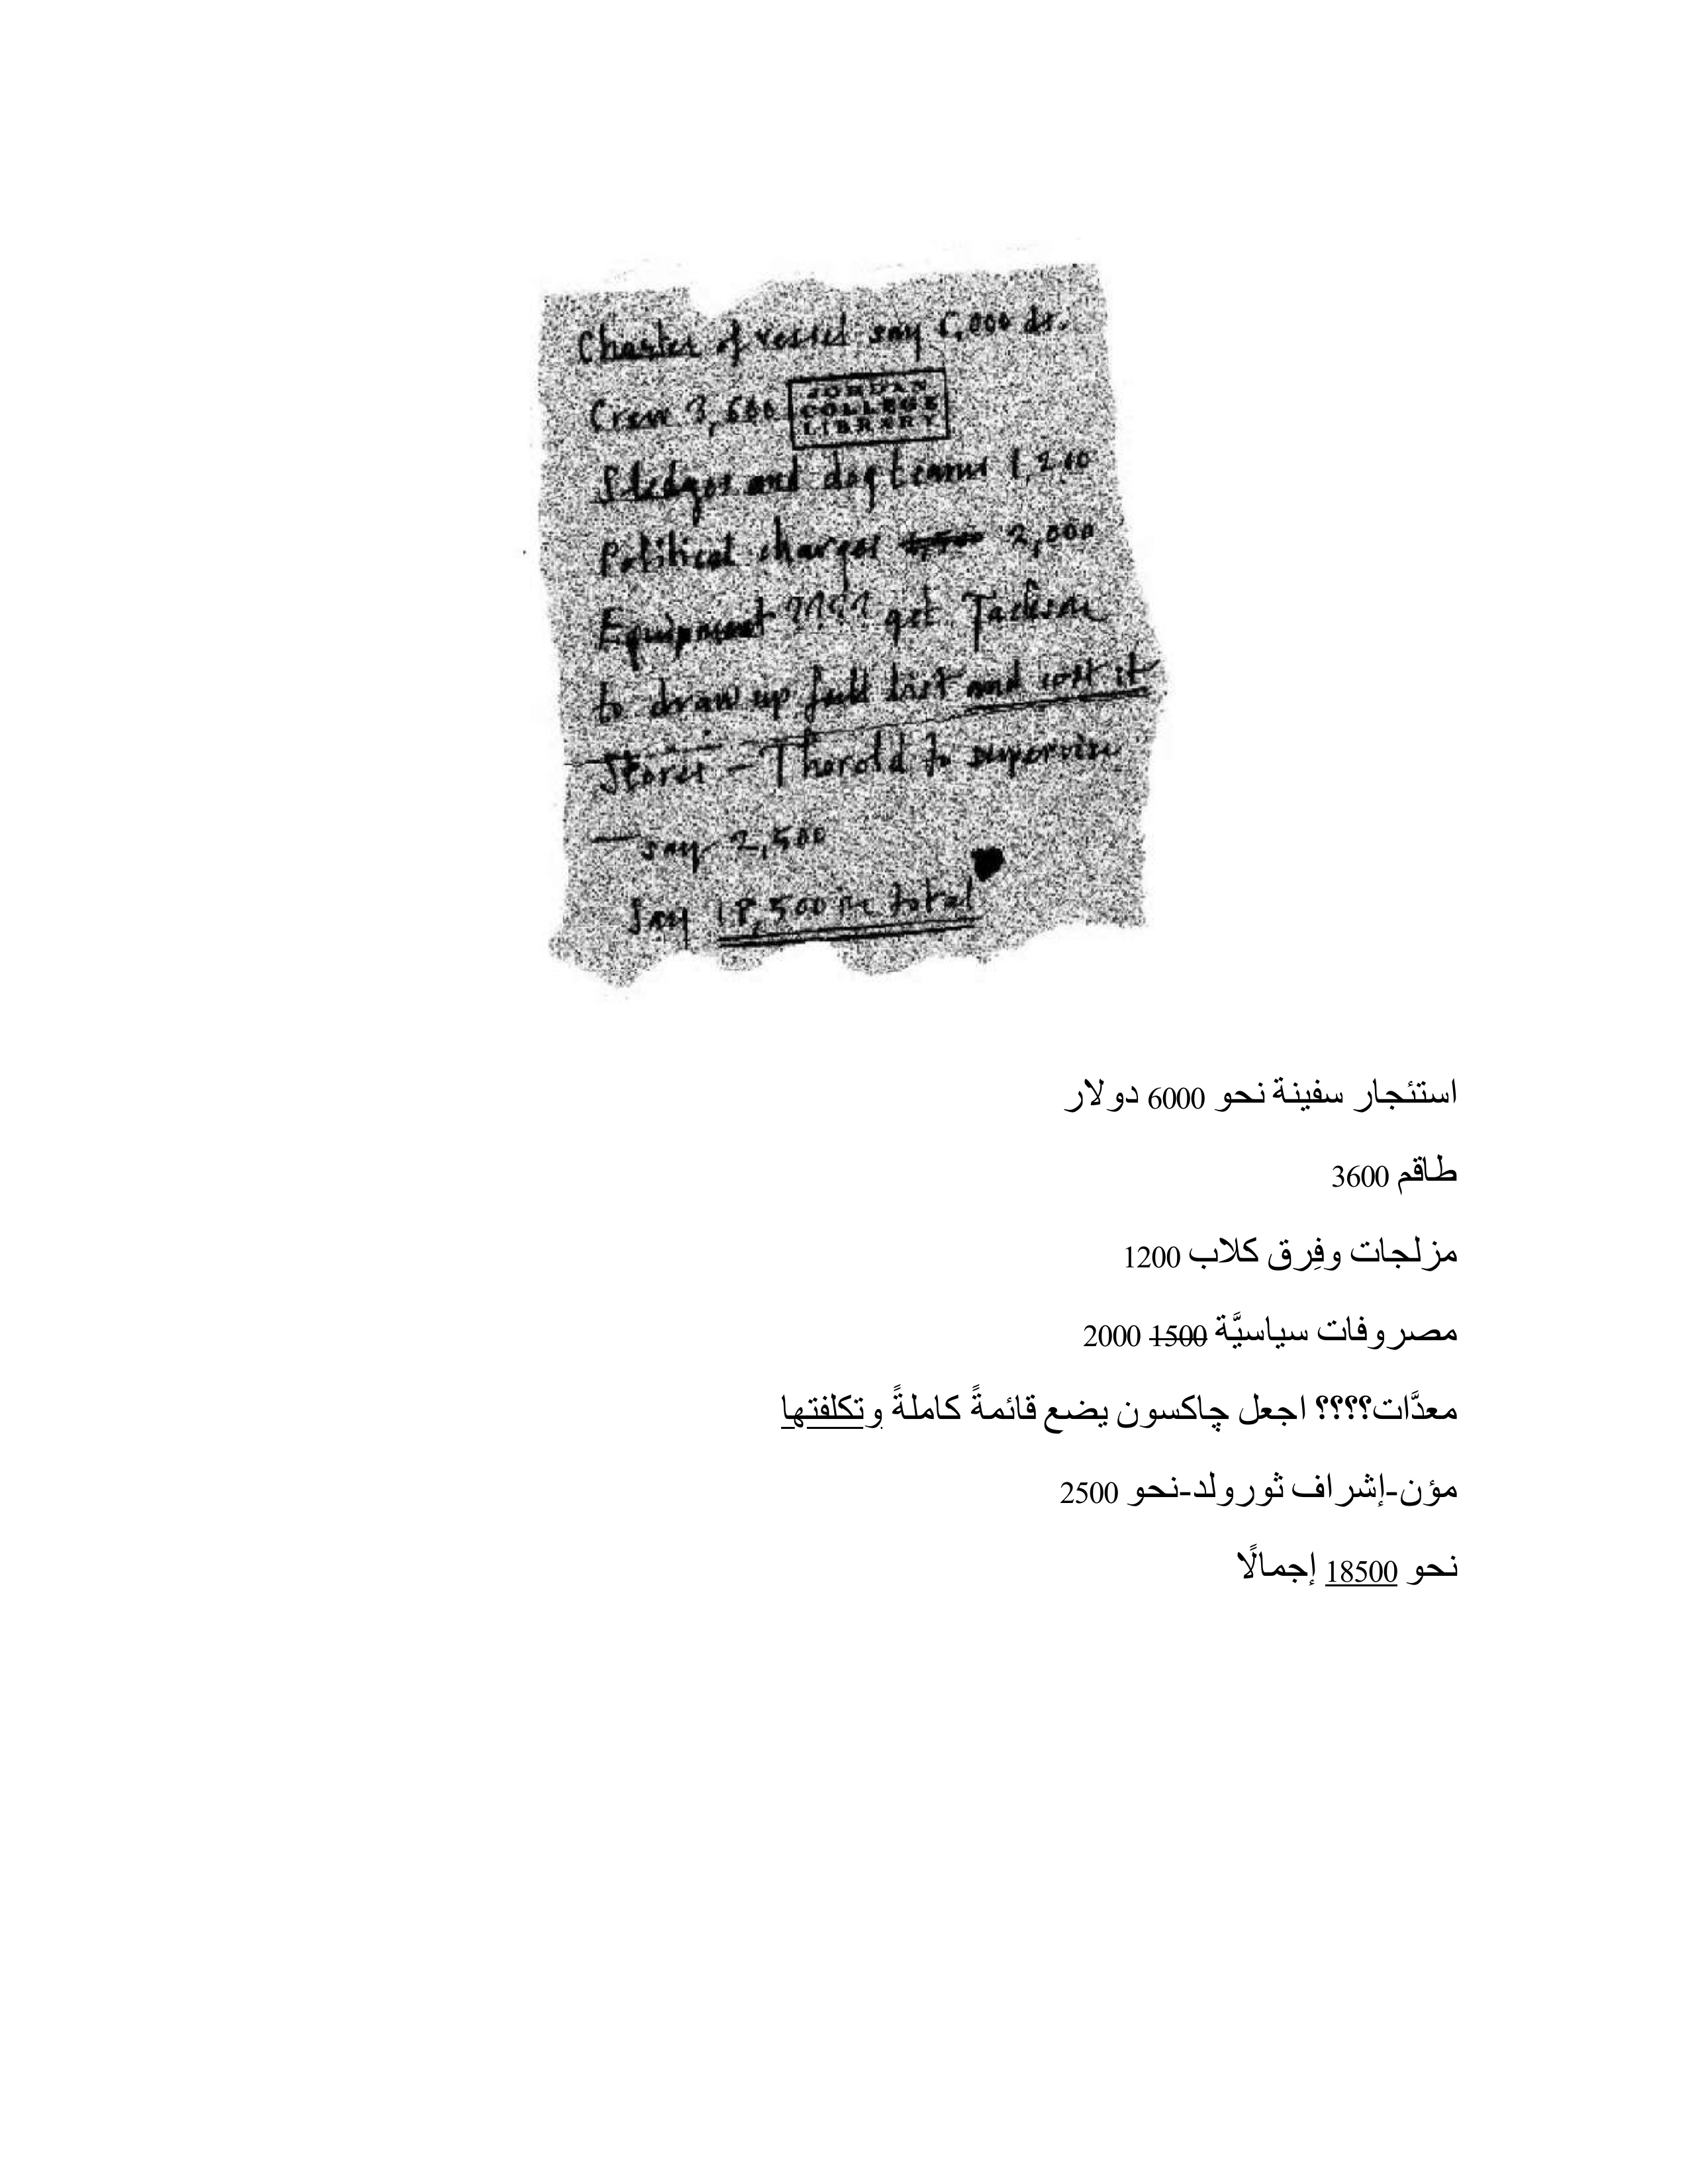 Charter of vessel say 6,000 dr.
Crew 3,600
JORDAN
COLLEGE
LIBRARY
Sledges and dog teams 1,200
Political charges ~~1,500~~ 2,000
Equipment ???? get Jackson
to draw up full list and cost it
Stores – Thorold to supervise
— say 2,500
Say 18,500 in total
استئجار سفينة نحو 6000 دولار
طاقم 3600
مزلجات وفِرق كلاب 1200
مصروفات سياسيَّة ~~1500~~ 2000
معدَّات؟؟؟؟ اجعل چاكسون يضع قائمةً كاملةً وتكلفتها
مؤن-إشراف ثورولد-نحو 2500
نحو 18500 إجمالًا